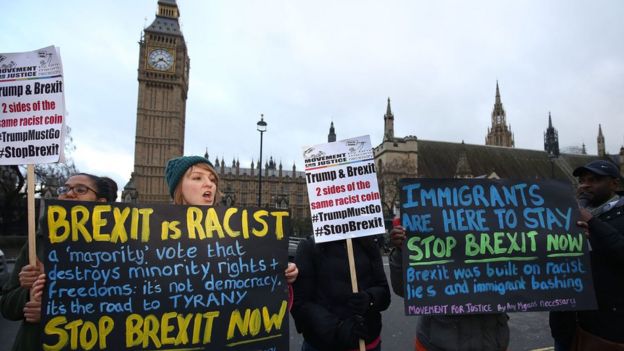 MOVEMENT
for JUSTICE
Trump & Brexit
2 sides of the
same racist coin
#TrumpMustGo
#StopBrexit
BREXIT IS RACIST
a 'majority' vote that
destroys minority rights +
freedoms: it's not democracy.
it's the road to TYRANNY
STOP BREXIT NOW
MOVEMENT
for JUSTICE
Trump & Brexit
2 sides of the
same racist coin
#TrumpMustGo
#StopBrexit
IMMIGRANTS
ARE HERE TO STAY
STOP BREXIT NOW
Brexit was built on racist
lies and immigrant bashing
MOVEMENT FOR JUSTICE By Any Means Necessary